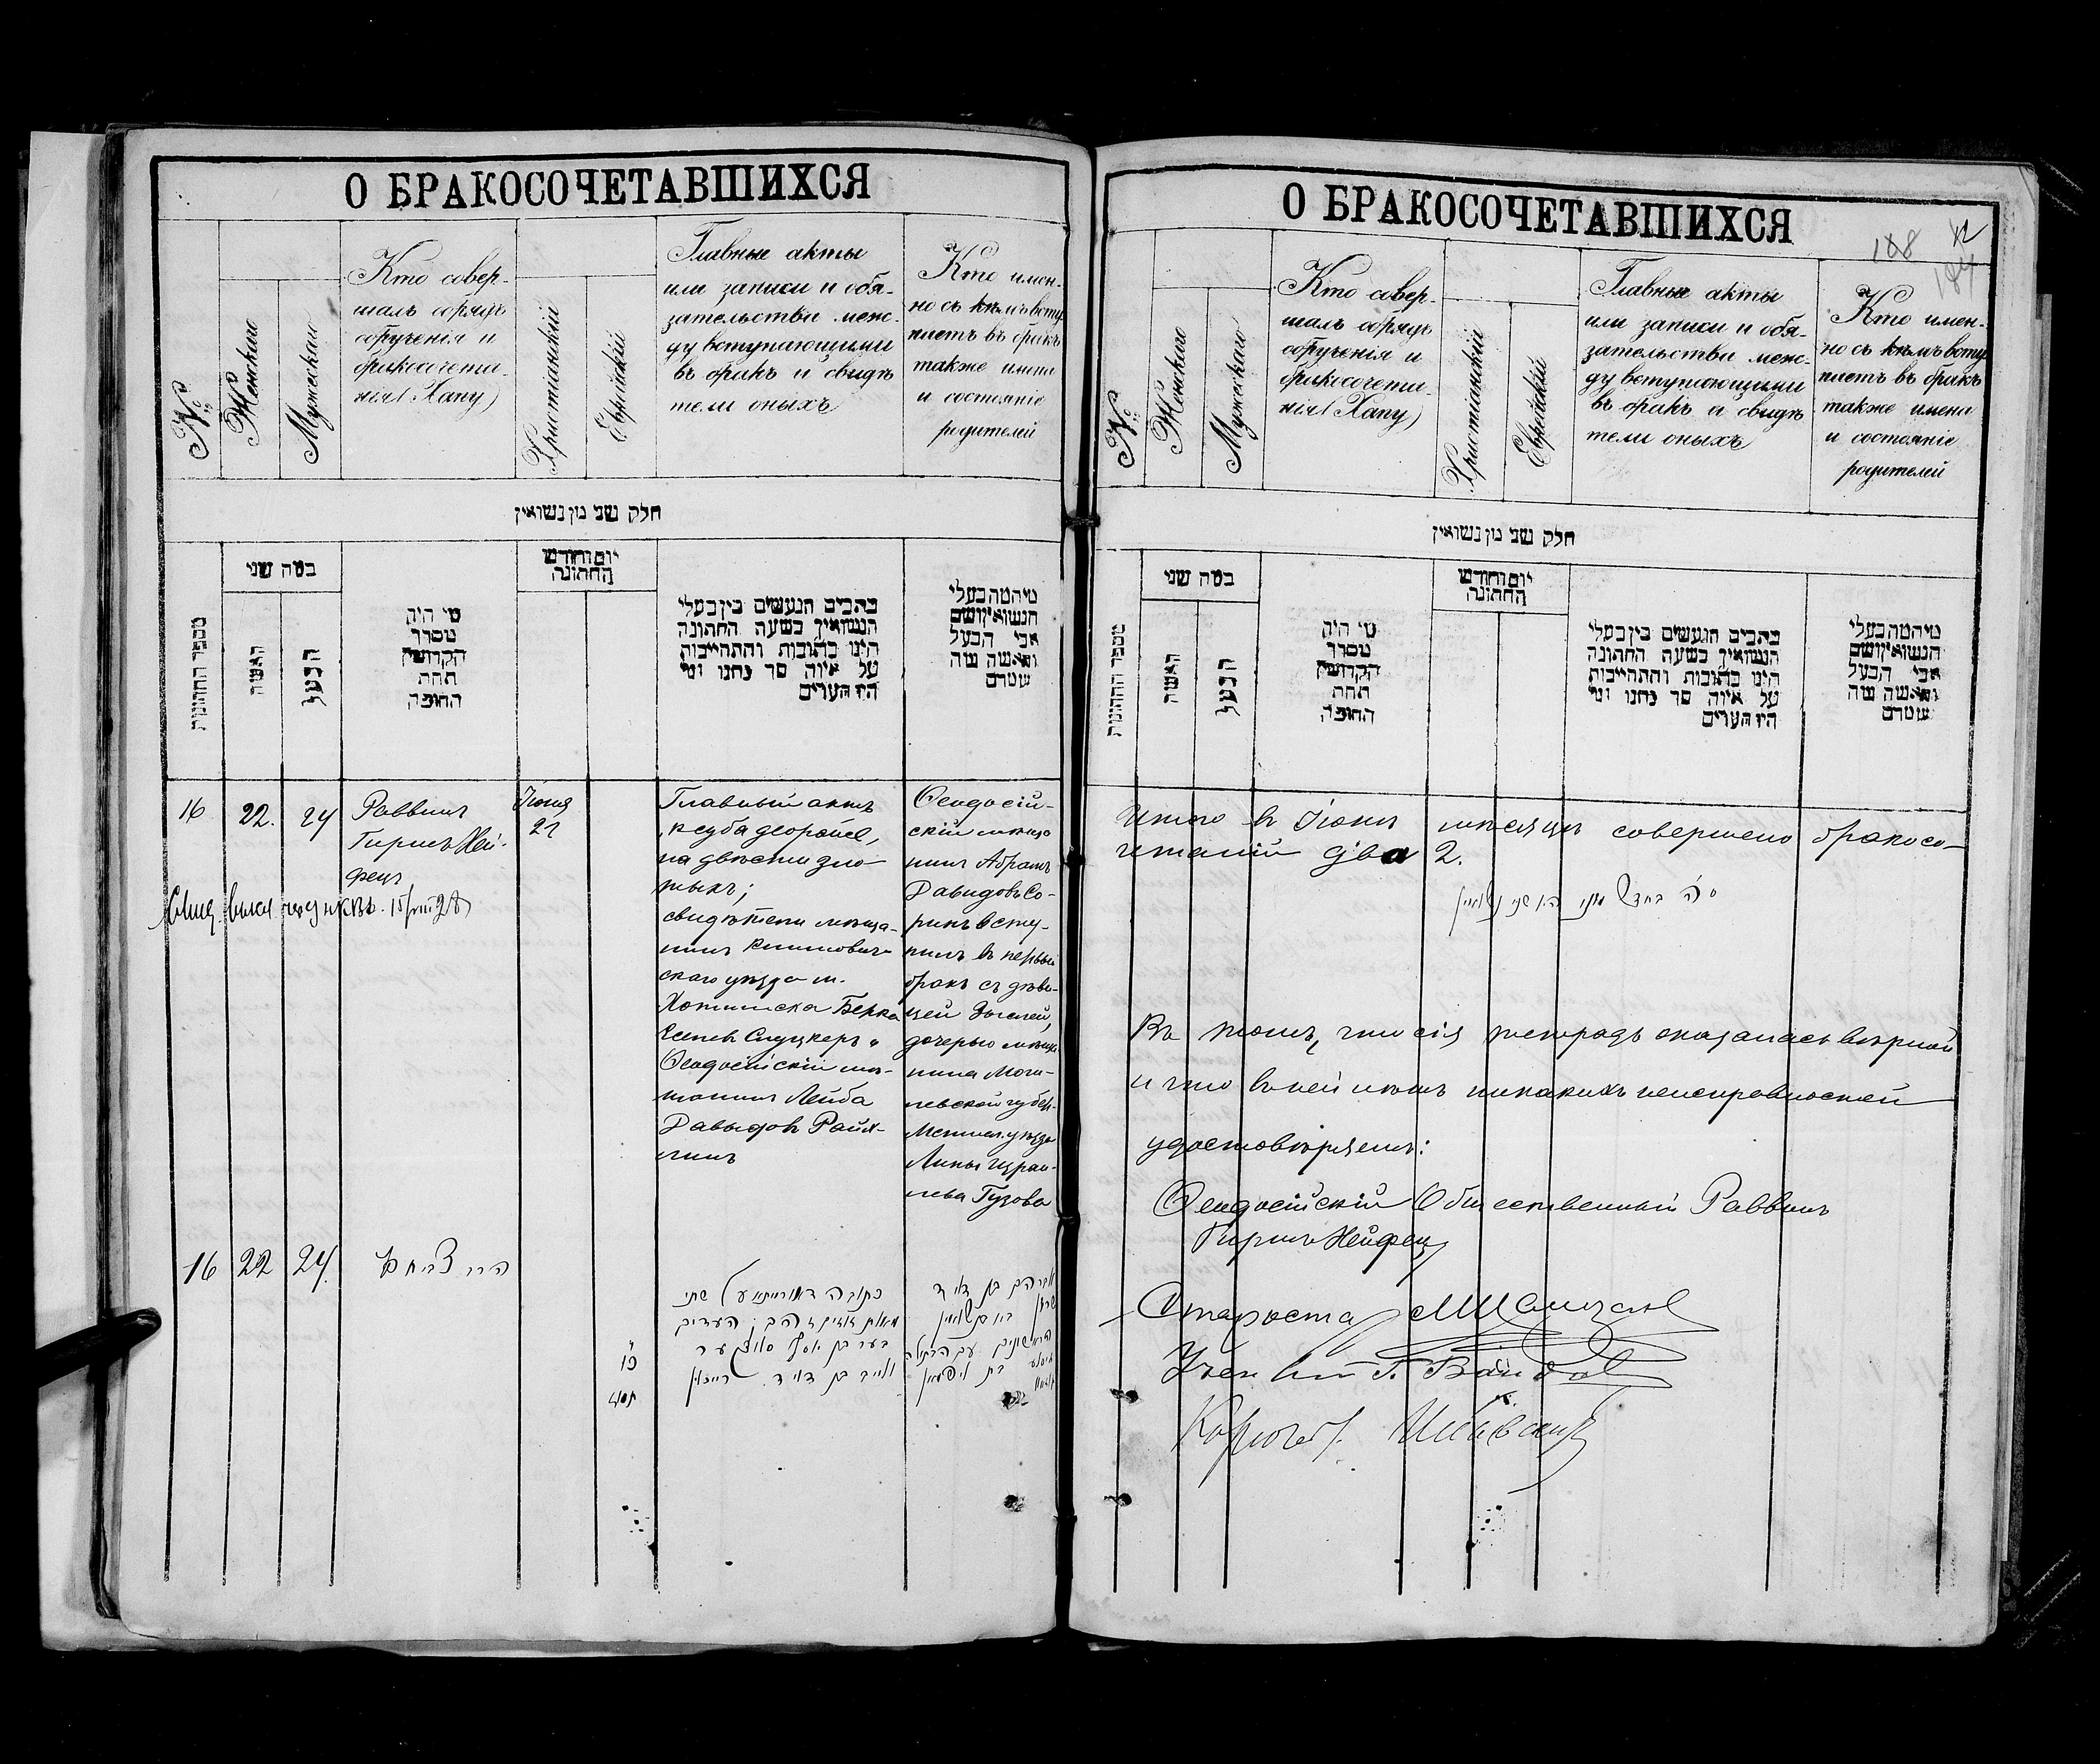 О БРАКОСОЧЕТАВШИХСЯ
№
Женскаго
Мужескаго
Кто совер-
шалъ обрядъ
обрученія и
бракосочета-
нія (Хапу)
Христіанскій
Еврейскій
Главные акты
или записи и обя-
зательстви меж-
ду вступающими
въ бракъ и свидѣ
тели оныхъ
Кто имен-
но съ кѣмъ всту
паетъ въ бракъ
также имена
и состояніе
родителей
חלק שני מן נשואין
מספר החתונות
במה שני
האשה
הבעל
מי היה
מסדר
הקדושין
תחת
החופה
יום וחודש
החתונה
כתבים הנעשים בין בעלי
הנשואין בשעה החתונה
היינו כתובות והתחייבות
על איזה סך נתנו ומי
היו העדים
מי המה בעלי
הנשואין ושם
אבי הבעל
והאשה מה
שמם
16
22.
24
Раввинъ
Гиршъ Хей-
фецъ
Іюня
21
Главный актъ
„ксуба деорайсе,
на двѣсти зло-
тыхъ;
свидѣтели мѣща-
нинъ Климович-
скаго уѣзда м.
Хотимска Берка
Слуцкеръ и
Ѳеодосійскій мѣ-
щанинъ Лейба
Давыдовъ
Ѳеодосій-
скій мѣща
нинъ Абрамъ
Давидовъ Со-
ринъ всту-
пилъ въ первый
бракъ съ дѣви-
цей
дочерью мѣща
нина Моги-
левской губер.
Мстисл. уѣзда
Израи-
лева Гузова
16
22
24
כתובה דאורייתא על שתי
מאות זהב; העדים
בער בן סלוצקער
ולייב בן דוד
אברהם בן דוד
О БРАКОСОЧЕТАВШИХСЯ
188
№
Женскаго
Мужескаго
Кто совер-
шалъ обрядъ
обрученія и
бракосочета-
нія (Хапу)
Христіанскій
Еврейскій
Главные акты
или записи и обя-
зательстви меж-
ду вступающими
въ бракъ и свидѣ
тели оныхъ
Кто имен-
но съ кѣмъ всту
паетъ въ бракъ
также имена
и состояніе
родителей
חלק שני מן נשואין
מספר החתונות
במה שני
האשה
הבעל
מי היה
מסדר
הקדושין
תחת
החופה
יום וחודש
החתונה
כתבים הנעשים בין בעלי
הנשואין בשעה החתונה
היינו כתובות והתחייבות
על איזה סך נתנו ומי
היו העדים
מי המה בעלי
הנשואין ושם
אבי הבעל
והאשה מה
שמם
Итого въ Іюнѣ мѣсяцѣ совершено бракосо-
четаній два 2.
Въ томъ, что сія тетрадь оказалась вѣрной
и что въ ней нѣтъ никакихъ неисправностей
удостовѣряемъ:
Ѳеодосійскій Общественный Раввинъ
Гиршъ Хейфецъ
Староста